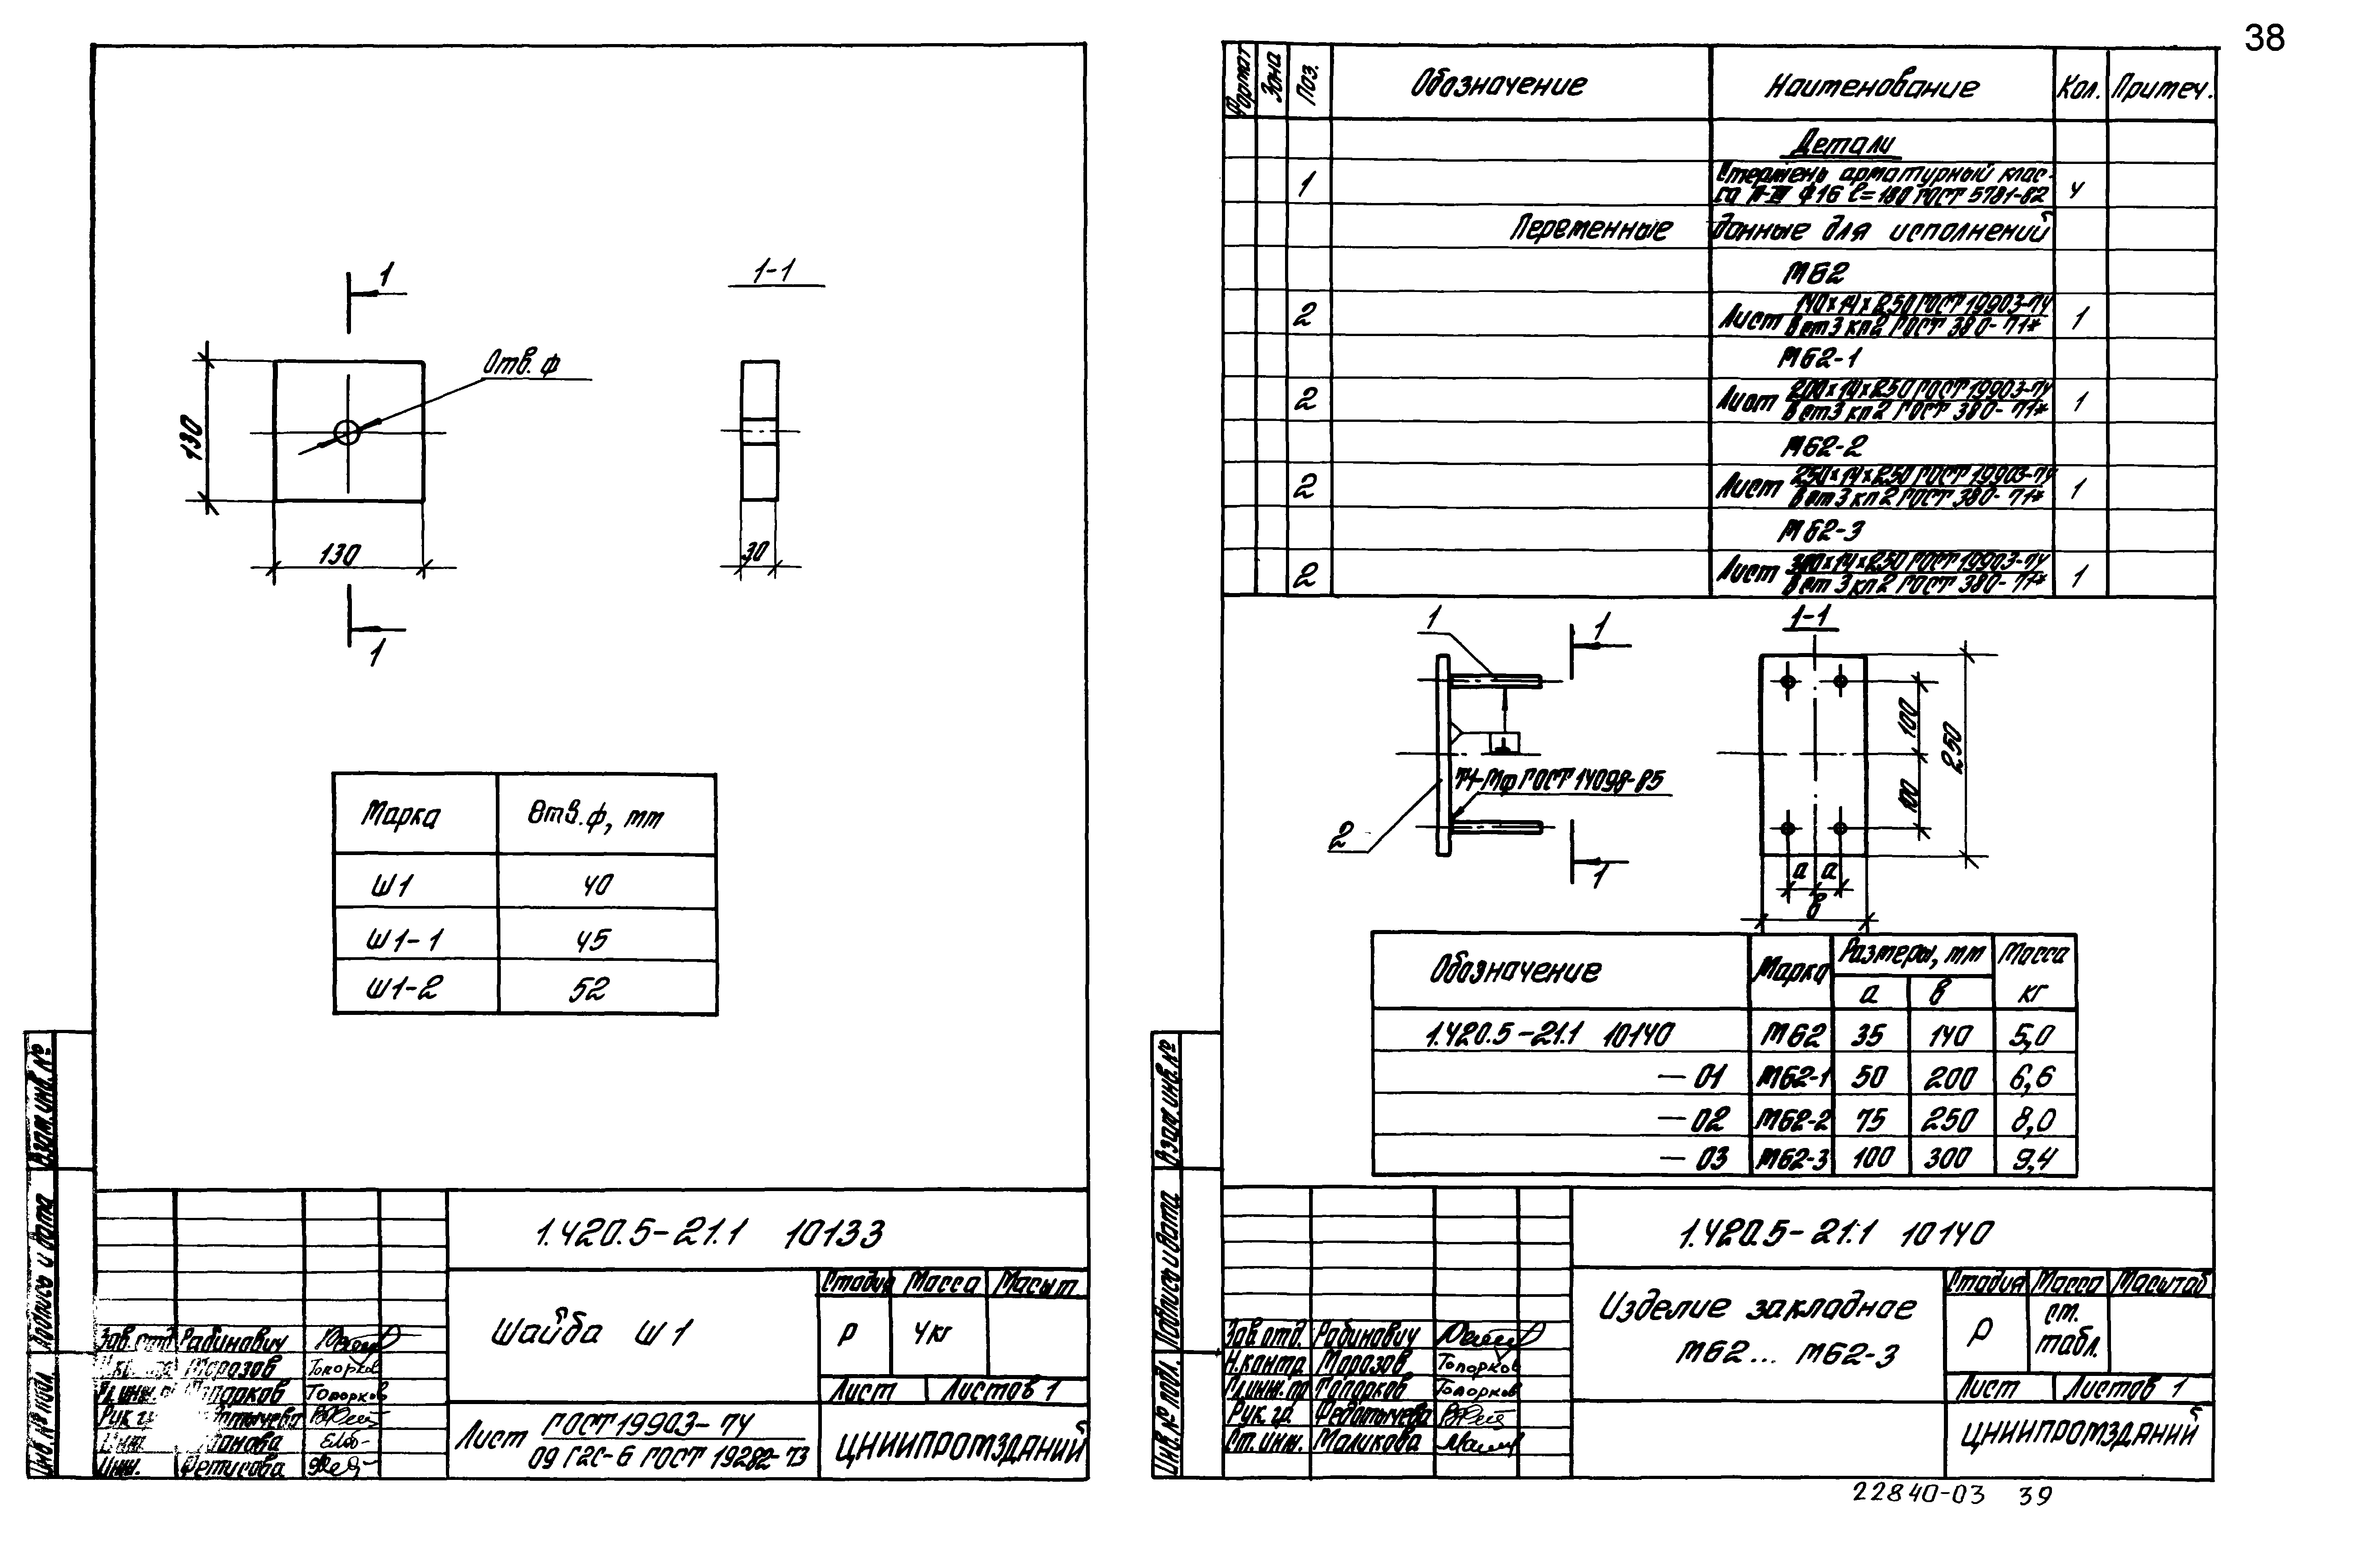 38
1
1-1
Отв. ф
130
130
30
1
Марка Отв. ф, мм
Ш1 40
Ш1-1 45
Ш1-2 52
Взам. инв. №
Подпись и дата
Инв. № подл.
1.420.5-21.1 10133
Шайба Ш1
Стадия Масса Масшт
Р 4кг
Лист Листов 1
Зав. отд. Рабинович
Морозов Топорков
Топорков
Рук. г
Инж. Фетисова
Лист ГОСТ 19903-74
09Г2С-6 ГОСТ 19282-73
ЦНИИПРОМЗДАНИЙ
Формат Зона Поз. Обозначение Наименование Кол. Примеч.
Детали
1 Стержень арматурный клас-
са А-III ф16 l=180 ГОСТ 5781-82 4
Переменные данные для исполнений
М62
2 Лист 140х14х250 ГОСТ 19903-74
Вст3кп2 ГОСТ 380-71* 1
М62-1
2 Лист 200х14х250 ГОСТ 19903-74
Вст3кп2 ГОСТ 380-71* 1
М62-2
2 Лист 250х14х250 ГОСТ 19903-74
Вст3кп2 ГОСТ 380-71* 1
М62-3
2 Лист 300х14х250 ГОСТ 19903-74
Вст3кп2 ГОСТ 380-71* 1
1
1
1-1
Т1-Мф ГОСТ 14098-85
2
1
100
100
250
а а
в
Обозначение Марка Размеры, мм Масса
а в кг
1.420.5-21.1 10140 М62 35 140 5,0
-01 М62-1 50 200 6,6
-02 М62-2 75 250 8,0
-03 М62-3 100 300 9,4
Взам. инв. №
Подпись и дата
Инв. № подл.
1.420.5-21.1 10140
Изделие закладное
М62... М62-3
Стадия Масса Масштаб
Р ст. табл.
Лист Листов 1
Зав. отд. Рабинович
Н.контр. Морозов Топорков
Гл.инж.пр Топорков Топорков
Рук. гр. Федотычева
Ст. инж. Маликова
ЦНИИПРОМЗДАНИЙ
22840-03 39